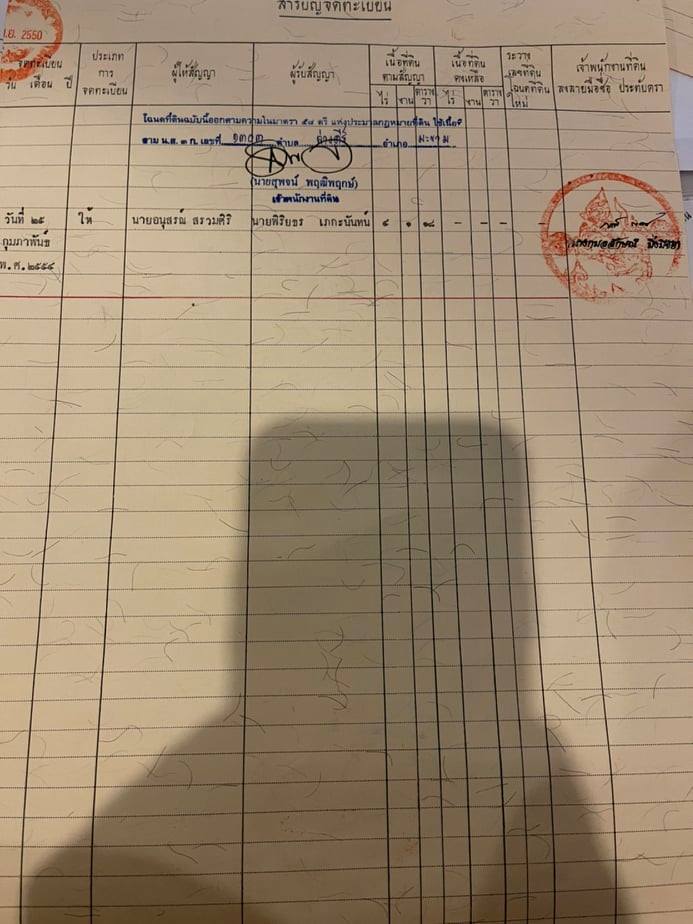 สารบัญจดทะเบียน
.ย. 2550
จดทะเบียน
วัน เดือน ปี
ประเภท
การ
จดทะเบียน
ผู้ให้สัญญา
ผู้รับสัญญา
เนื้อที่ดิน
ตามสัญญา
ไร่ งาน ตาราง
วา
เนื้อที่ดิน
คงเหลือ
ไร่ งาน ตาราง
วา
ระวาง
เลขที่ดิน
โฉนดที่ดิน
ใหม่
เจ้าพนักงานที่ดิน
ลงลายมือชื่อ ประทับตรา
โฉนดที่ดินฉบับนี้ออกตามความในมาตรา ๕๘ ตรี แห่งประมวลกฎหมายที่ดิน ใช้เนื้อที่
ตาม น.ส. ๓ ก. เลขที่ ตำบล อำเภอ มะขาม
(นายสุพจน์ พฤฒิพฤกษ์)
เจ้าพนักงานที่ดิน
วันที่ ๒๕ ให้ นายอนุสรณ์ สรวมศิริ นายพิริยธร เภกะนันทน์ ๔ ๑ ๑๘ - - - - -
กุมภาพันธ์
พ.ศ.๒๕๕๔